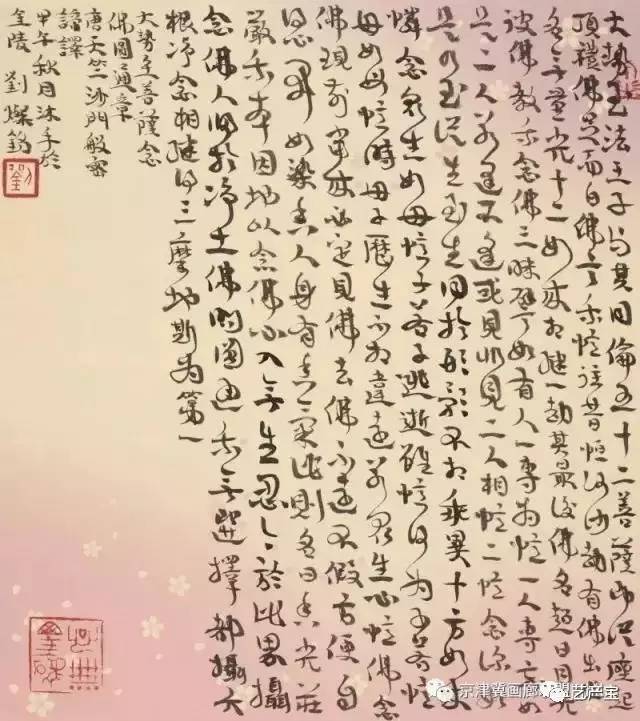 大勢至法王子与其同倫五十二菩薩即從座起
頂禮佛足而白佛言我憶往昔恒河沙劫有佛出世
名無量光十二如來相繼一劫其最後佛名超日月光
彼佛教我念佛三昧譬如有人一專為憶一人專忘如
是二人若逢不逢或見非見二人相憶二憶念深如
是乃至從生至生同於形影不相乖異十方如來
憐念衆生如母憶子若子逃逝雖憶何為子若憶
母如母憶時母子歷生不相違遠若衆生心憶佛念
佛現前當來必定見佛去佛不遠不假方便自
得心開如染香人身有香氣此則名曰香光莊
嚴我本因地以念佛心入無生忍今於此界攝
念佛人歸於净土佛問圓通我無選擇都攝六
根净念相繼得三摩地斯為第一
大勢至菩薩念
佛圓通章
唐天竺沙門般密
諦譯
甲午秋月沐手於
金陵 劉燦銘
劉
京津冀画廊联盟
艺产宝